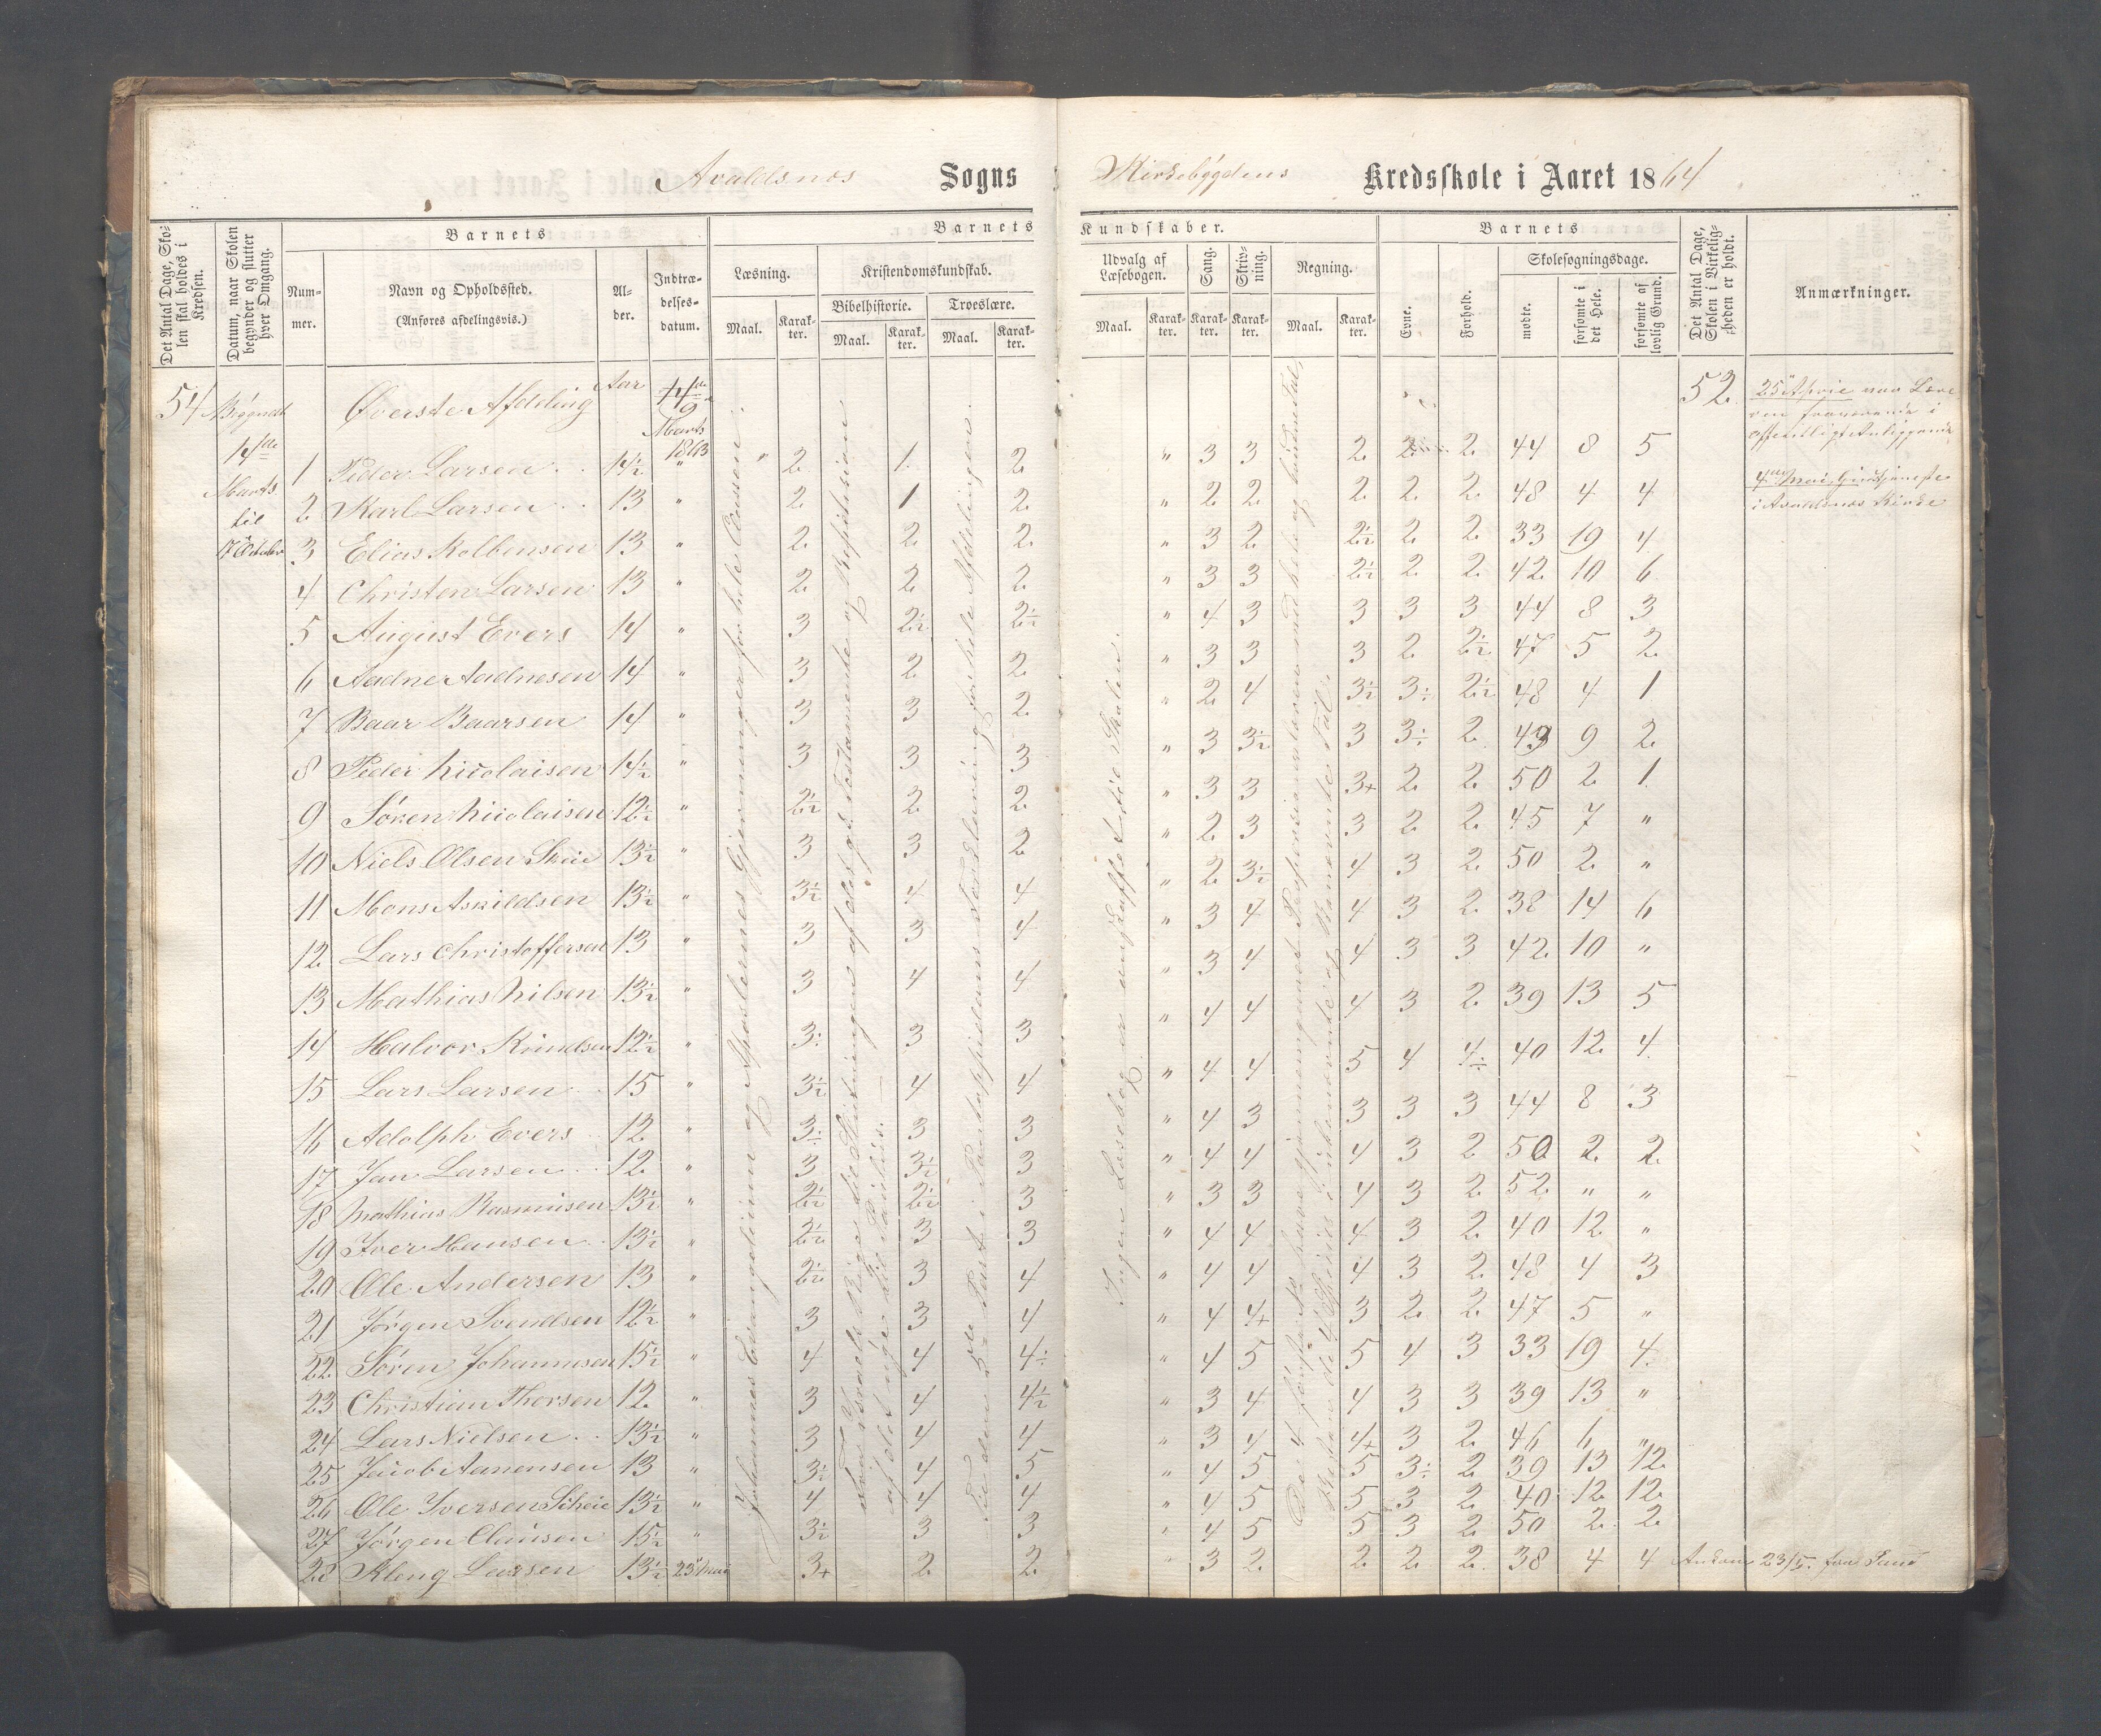 Avaldsnes Sogns Kirkebygdens Kredsskole i Aaret 1864
Det Antal Dage, Skolen skal holdes i Kredsen.
Datum, naar Skolen begynder og slutter hver Omgang.
Barnets
Nummer.
Navn og Opholdssted. (Anføres afdelingsvis.)
Alder.
Indtrædelsesdatum.
Barnets Kundskaber.
Læsning.
Maal. Karakter.
Kristendomskundskab.
Bibelhistorie. Troeslære.
Maal. Karakter. Maal. Karakter.
Udvalg af Læsebogen.
Maal. Karakter.
Sang. Karakter.
Skrivning. Karakter.
Regning.
Maal. Karakter.
Barnets
Evne. Forhold.
Skolesøgningsdage.
mødte. forsømte i det Hele. forsømte af lovlig Grund.
Det Antal Dage, Skolen i Virkeligheden er holdt.
Anmærkninger.
54 Begyndt Øverste Afdeling Aar 52
14de Marts til
Marts 1863
1 Peder Larsen 14½ " " 2 1 2 " 3 3 2 2 2 44 8 5
2 Karl Larsen 13 " 2 1 2 " 2 2 2 2 2 48 4 4
3 Elias Kolbensen 13 " 2 2 2 " 3 2 2½ 2 2 33 19 4
4 Christen Larsen 13 " 2 2 2 " 3 3 2½ 2 2 42 10 6
5 August Evers 14 " 3 2½ 2½ " 4 3 3 3 3 44 8 3
6 Aadne Aadnesen 14 " 3 2 2 " 3 3 3 2 2½ 47 5 2
7 Baar Baarsen 14 " 3 3 2 " 2 4 3½ 3÷ 2½ 48 4 1
8 Peder Nicolaisen 14½ " 3 3 3 " 3 3½ 3 3÷ 2 49 9 2
9 Søren Nicolaisen 12½ " 2½ 2 2 " 3 3 3+ 2 2 50 2 1
10 Niels Olsen Skeie 13½ " 3 3 2 " 2 3 3 2 2 45 7 "
11 Mons Askildsen 13½ " 3½ 4 4 " 2 3½ 4 3 2 50 2 "
12 Lars Christoffersen 13 " 3 3 4 " 3 4 4 3 2 38 14 6
13 Mathias Nilsen 13½ " 3 4 4 " 3 4 4 3 3 42 10 "
14 Halvor Knudsen 12½ " 3÷ 3 3 " 4 4 4 3 2 39 13 5
15 Lars Larsen 15 " 3½ 4 4 " 4 4 5 4 4÷ 40 12 4
16 Adolph Evers 12 " 3÷ 3 3 " 4 3 3 3 3 44 8 3
17 Jan Larsen 12 " 3 3½ 3 " 4 4 4 3 2 50 2 2
18 Mathias Rasmusen 13½ " 2½ 2½ 3 " 3 3 4 3 2 52 " "
19 Iver Hansen 13½ " 2½ 3 3 " 4 4 4 3 2 40 12 "
20 Ole Andersen 13 " 2½ 3 4 " 4 4 4 3 2 48 4 3
21 Jørgen Svendsen 12½ " 3 3 4 " 4 4+ 3 2 2 47 5 "
22 Søren Johannesen 15½ " 4 4 4÷ " 4 5 5 4 3 33 19 4
23 Christian Thorsen 12 " 3 4 4½ " 3 4 4 3 3 39 13 "
24 Lars Nielsen 13½ " 3 4 4 " 3 4 4+ 3 2 46 6 "
25 Jacob Aanensen 13 " 3½ 4 5 " 4 5 5 3÷ 2 39 13 12
26 Ole Iversen Scheie 13½ " 4 4 4 " 4 5 5 3 2 40 12 12
27 Jørgen Clausen 15½ " 3½ 3 3 " 4 5 5 3 2 50 2 2
28 Kleng Larsen 13½ 23 Mai 3+ 2 2 " 3 2 2 2 2 38 4 4 Ankom 23/5 fra
Johannes Evangelium og Apostlernes Gjerninger for hele Classen
Ingen Læsebog er anskaffet til Skolen.
25 April var Læreren fraværende i offentligt Anliggende
4 Mai Gudstjeneste i Avaldsnes Kirke